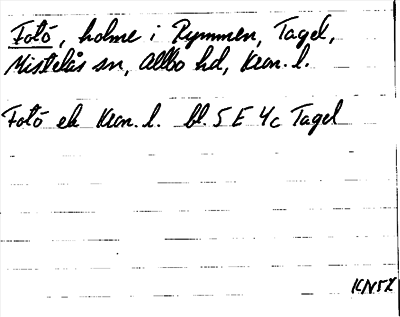 Fotö, holme i Rymmen, Tagel,
Mistelås sn, Allbo hd, Kron. l.
Fotö ek Kron. l. bl. 5 E 4c Tagel